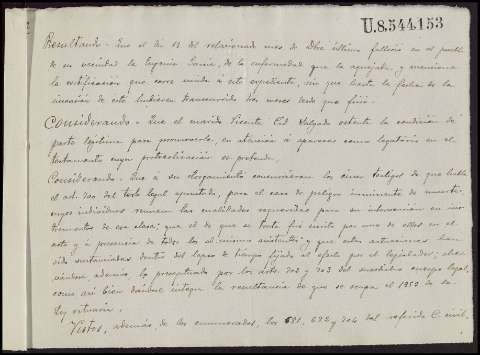 U.8.544.153
Resultando - Que el dia 13 del relacionado mes de Dbre último falleció en el pueblo
de su vecindad la Eugenia García, de la enfermedad que la aquejaba, y menciona
la certificación que corre unida á este expediente, sin que hasta la fecha de la
incoación de éste hubieran transcurrido tres meses desde que finó.
Considerando - Que el marido Vicente Cid Salgado ostenta la condición de
parte legítima para promoverlo, en atención á aparecer como legatario en el
testamento cuya protocolización se pretende.
Considerando - Que á su otorgamiento concurrieron los cinco testigos de que habla
el art. 700 del texto legal apuntado, para el caso de peligro inminente de muerte,
cuyos individuos reunen las cualidades requeridas para su intervención en ins-
trumentos de esa clase; que el de que se trata fué escrito por uno de ellos en el
acto y á presencia de todos los al mismo asistentes; y que estas actuaciones han
sido sustanciadas dentro del lapso de tiempo fijado al efecto por el legislador; obser-
vándose además, lo preceptuado por los arts. 702 y 703 del susodicho cuerpo legal,
como así bien dándose íntegra la resultancia de que se ocupa el 1953 de la
Ley rituaria.
Vistos, además, de los enumerados, los 681, 692 y 704 del referido C. civil,